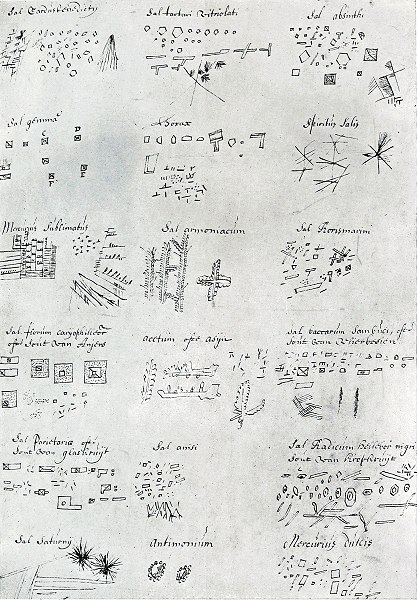 Sal Cardui benedicty
Sal tartari Vitriolati
Sal absinthi
Sal gemmæ
Borax
Spiritus Salis
Mercurius Sublimatus
Sal armoniacum
Sal Rorismarini
Sal florum caryophilleor
oft Sout van Anjers
acetum ofte asijn
Sal baccarum Sambuci, oft
Sout van Vlierbesien
Sal Parietariæ oft
Sout van glaskruijt
Sal anisi
Sal Radicum Hellebor nigri
Sout van
Sal Saturny
Antimonium
Mercurius Dulcis